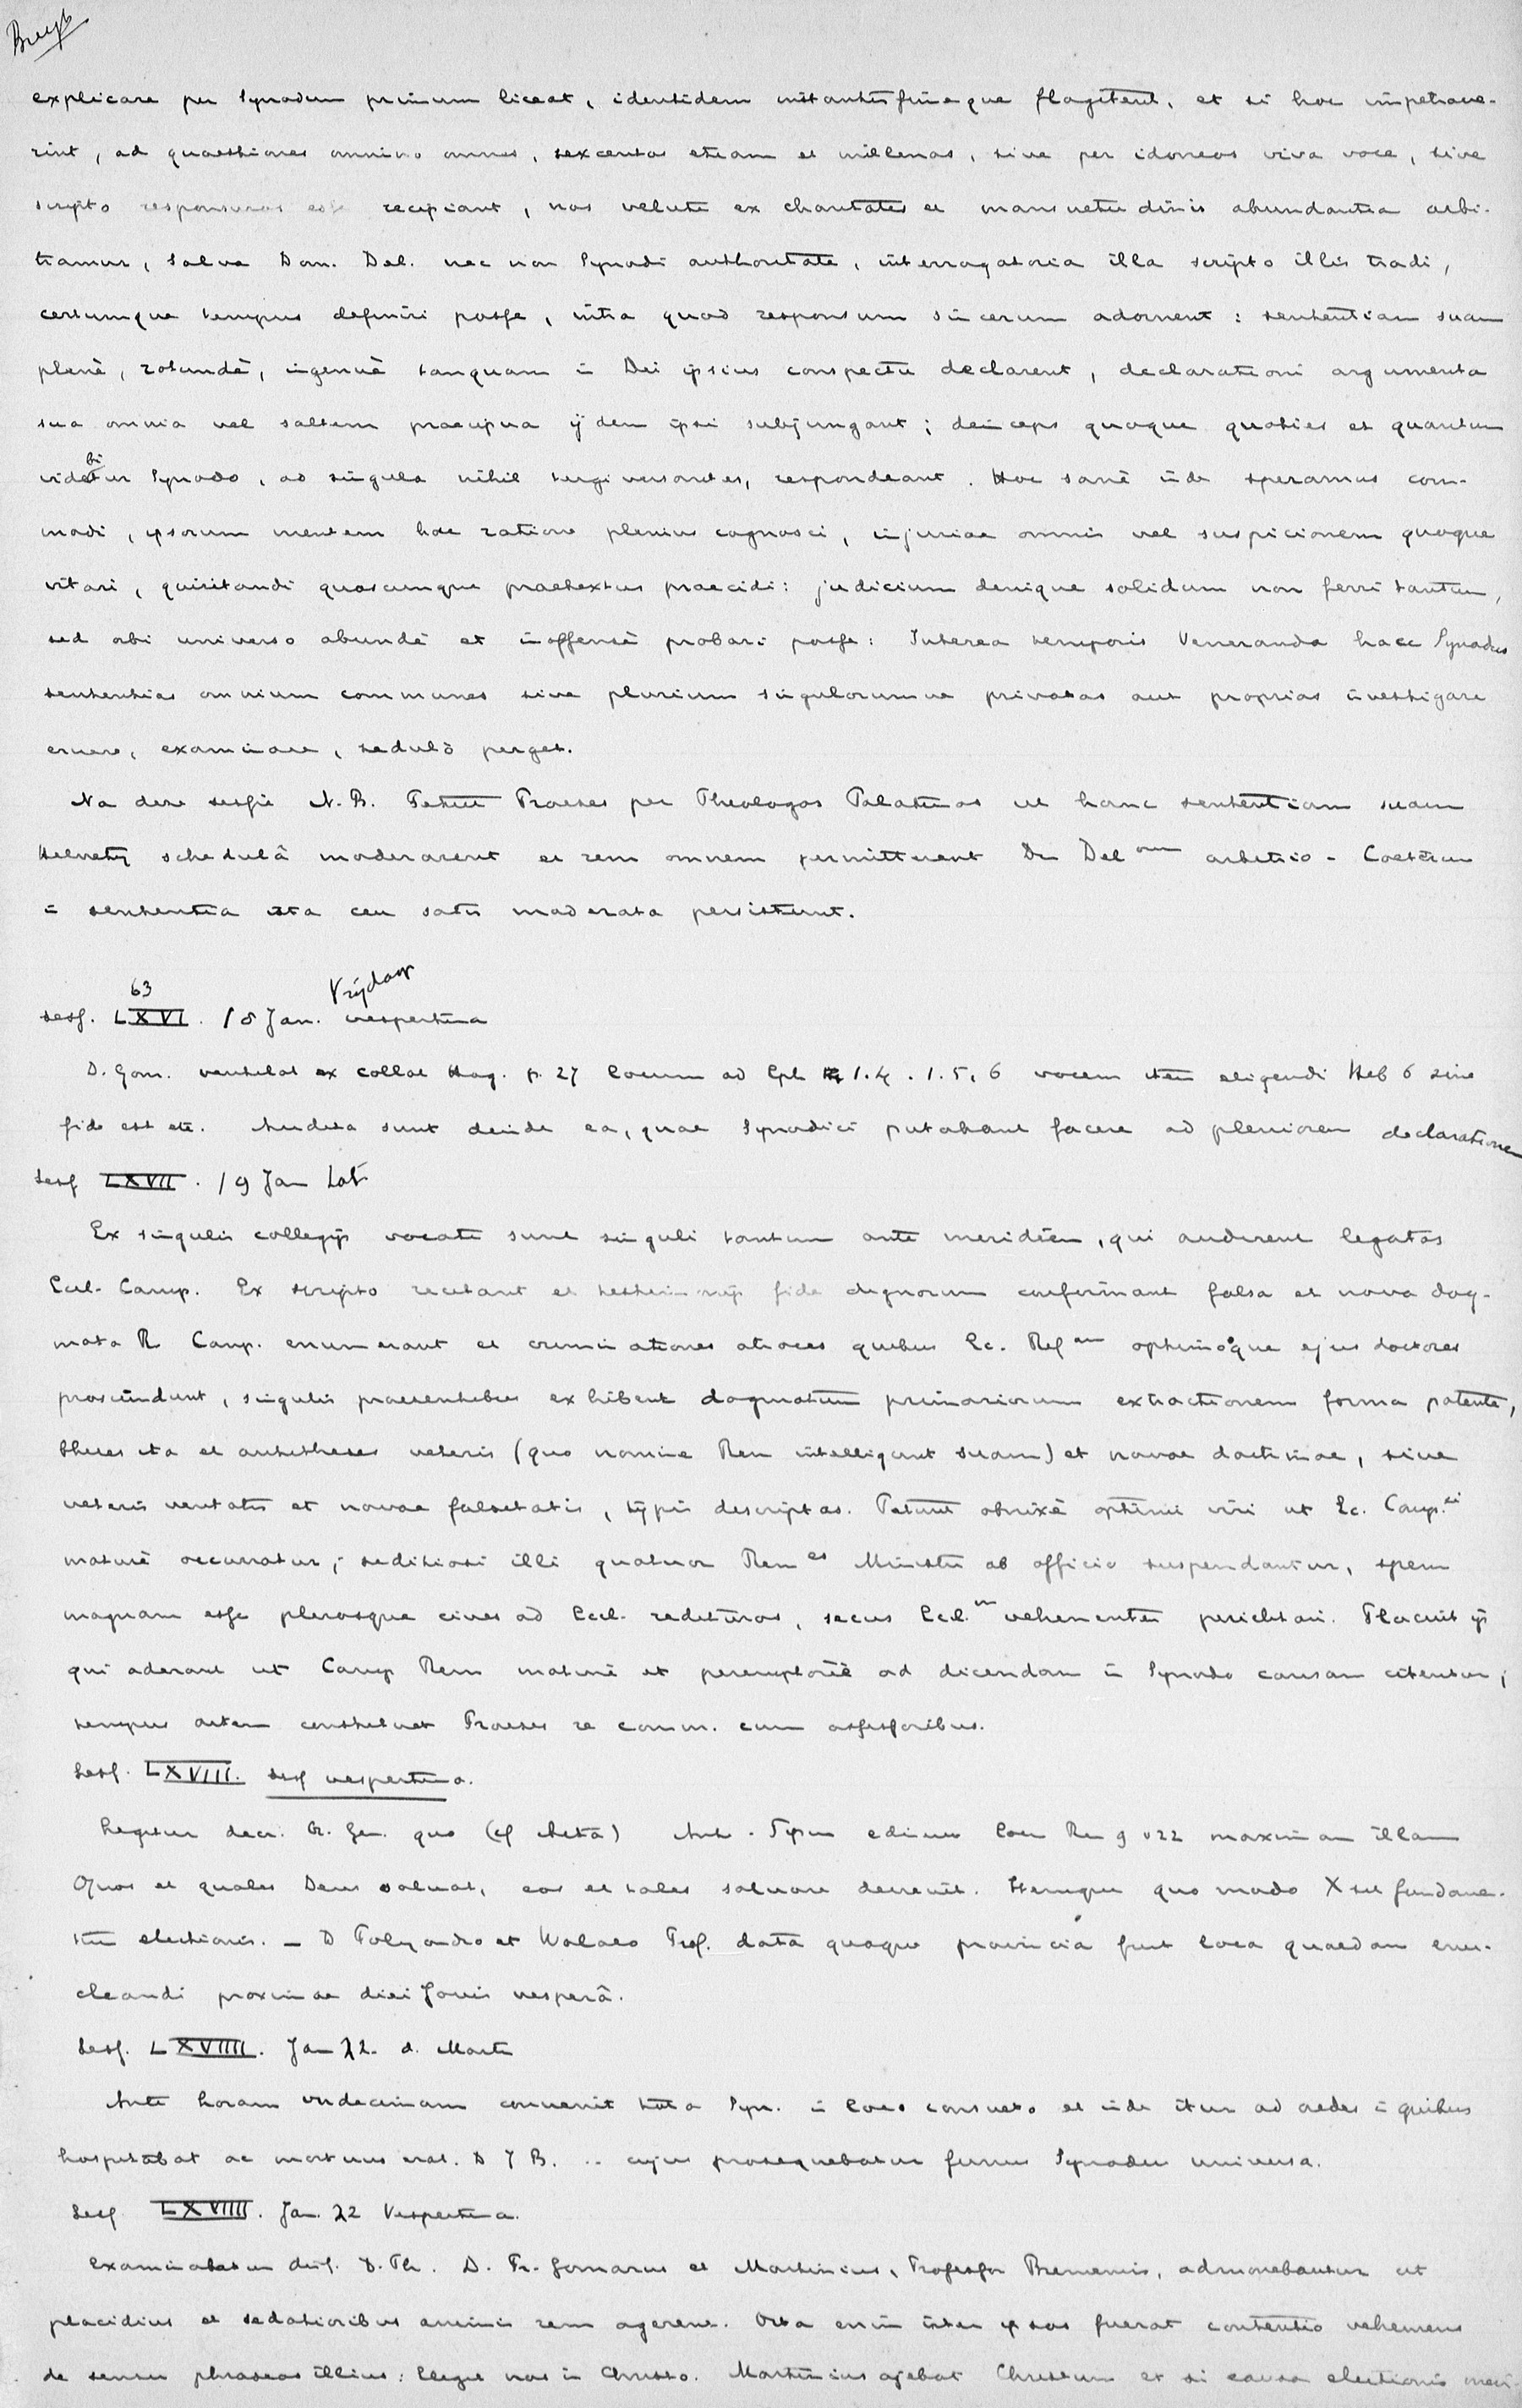 explicare per Synodum primum liceat, identidem instantissimeque flagitent, et si hoc impetrave-
rint, ad quaestiones omnino omnes, sexcentas etiam et millenas, sive per idoneos viva voce, sive
scripto responsuros esse recipiant, nos velut ex charitatis et mansuetudinis abundantia arbi-
tramur, salva Dom. Del. nec non Synodi authoritate, interrogatoria illa scripto illis tradi,
certumque tempus definiri posse, intra quod responsum sincerum adornent: sententiam suam
plenè, rotundè, ingenuè tanquam in Dei ipsius conspectu declarent, declarationi argumenta
sua omnia vel saltem praecipua ijdem ipsi subjungant; deinceps quoque quoties et quantum
videbitur Synodo, ad singula nihil tergiversantes, respondeant. Hoc sanè inde speramus com-
modi, ipsorum mentem hac ratione plenius cognosci, injuriae omnis vel suspicionem quoque
vitari, quiritandi quoscumque praetextus praecidi: judicium denique solidum non ferri tantum,
sed orbi universo abundè et inoffensè probari posse: Interea temporis Veneranda haec Synodus
sententias omnium communes sive plurium singulorumve privatas aut proprias investigare
eruere, examinare, sedulò perget.
Na deze sessie N.B. Petiit Praeses per Theologos Palatinos ut hanc sententiam suam
Helvetij schedulâ moderarent et rem omnem permitterent Dn Del om arbitrio - Caeterum
in sententia ista ceu satis moderata persisterunt.
63 Vrijdag
sess. LXVI. 18 Jan. vespertina
D. Gom. ventilat ex collat Hag. p. 27 locum ad Eph 1.4. 1.5, 6 vocem item eligendi Heb 6 sine
fide est etc. Audita sunt deinde ea, quae Synodici putabant facere ad pleniorem declarationem
Sess LXVII. 19 Jan Sat
Ex singulis collegijs vocati sunt singuli tantum ante meridiem, qui audirent legatos
Eccl. Camp. Ex scripto recitant et testimonijs fide dignorum confirmant falsa et nova dog-
mata R Camp. enumerant et criminationes atroces quibus Ec. Ref am optimosque ejus doctores
proscindunt, singulis praesentibus exhibent dogmatum primariorum extractionem forma patente,
theses ita et antitheses veteris (quo nomine Rem intelligunt suam) et novae doctrinae, sive
veteris veritatis et novae falsitatis, typis descriptas. Petunt obnixè optimi viri ut Ec. Camp.si
maturè occurratur; seditiosi illi quatuor Rem es Ministri ab officio suspendantur, spem
magnam esse plerosque cives ad Eccl. redituros, secus Eccl.m vehementer periclitari. Placuit ijs
qui aderant ut Camp Rem maturè et peremptoriè ad dicendam in Synodo causam citentur;
tempus autem constituet Praeses re comm. cum assessoribus.
Sess. LXVIII. sess vespertina.
Legitur decr. Or. Ge. quo (cf Acta) Ante Ipsum edimus locu Rm 9 v22 maximam illam
Quos et quales Deus salvat, eos et tales salvare decrevit. Itemque quo modo X sit fundame-
tum electionis. - D Polyandro et Walaeo Prof. data quoque provincia fuit loca quaedam enu-
cleandi proximae diei Jovis vesperâ.
Sess. LXVIIII. Jan 22. d. Marti
Ante horam undecimam convenit tota Syn. in loco consueto et inde itur ad aedes in quibus
hospitabat ac mortuus erat. D J B. .. cujus prosequebatur funus Synodus universa.
Sess LXVIIII. Jan. 22 Vespertina.
Examinabatur D. Fr. Gomarus et Martinius, Professor Bremensis, admonebantur ut
placidius et sedatioribus animis rem agerent. Orta enim inter ipsos fuerat contentio vehemens
de sensu phraseos illius: Elegit nos in Christo. Martinius ajebat Christum et si causa electionis meri-